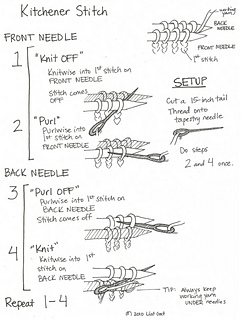 Kitchener Stitch
working yarn
BACK NEEDLE
FRONT NEEDLE
1st stitch
FRONT NEEDLE
1 "Knit OFF"
Knitwise into 1st stitch on
FRONT NEEDLE
Stitch comes
OFF
2 "Purl"
Purlwise into
1st stitch on
FRONT NEEDLE
SETUP
Cut a 15-inch tail
Thread onto
tapestry needle
Do steps
2 and 4 once.
BACK NEEDLE
3 "Purl OFF"
Purlwise into 1st stitch on
BACK NEEDLE
Stitch comes off
4 "Knit"
Knitwise into 1st
stitch on
BACK NEEDLE
Repeat 1-4
TIP: Always keep
working yarn
UNDER needles
© 2010